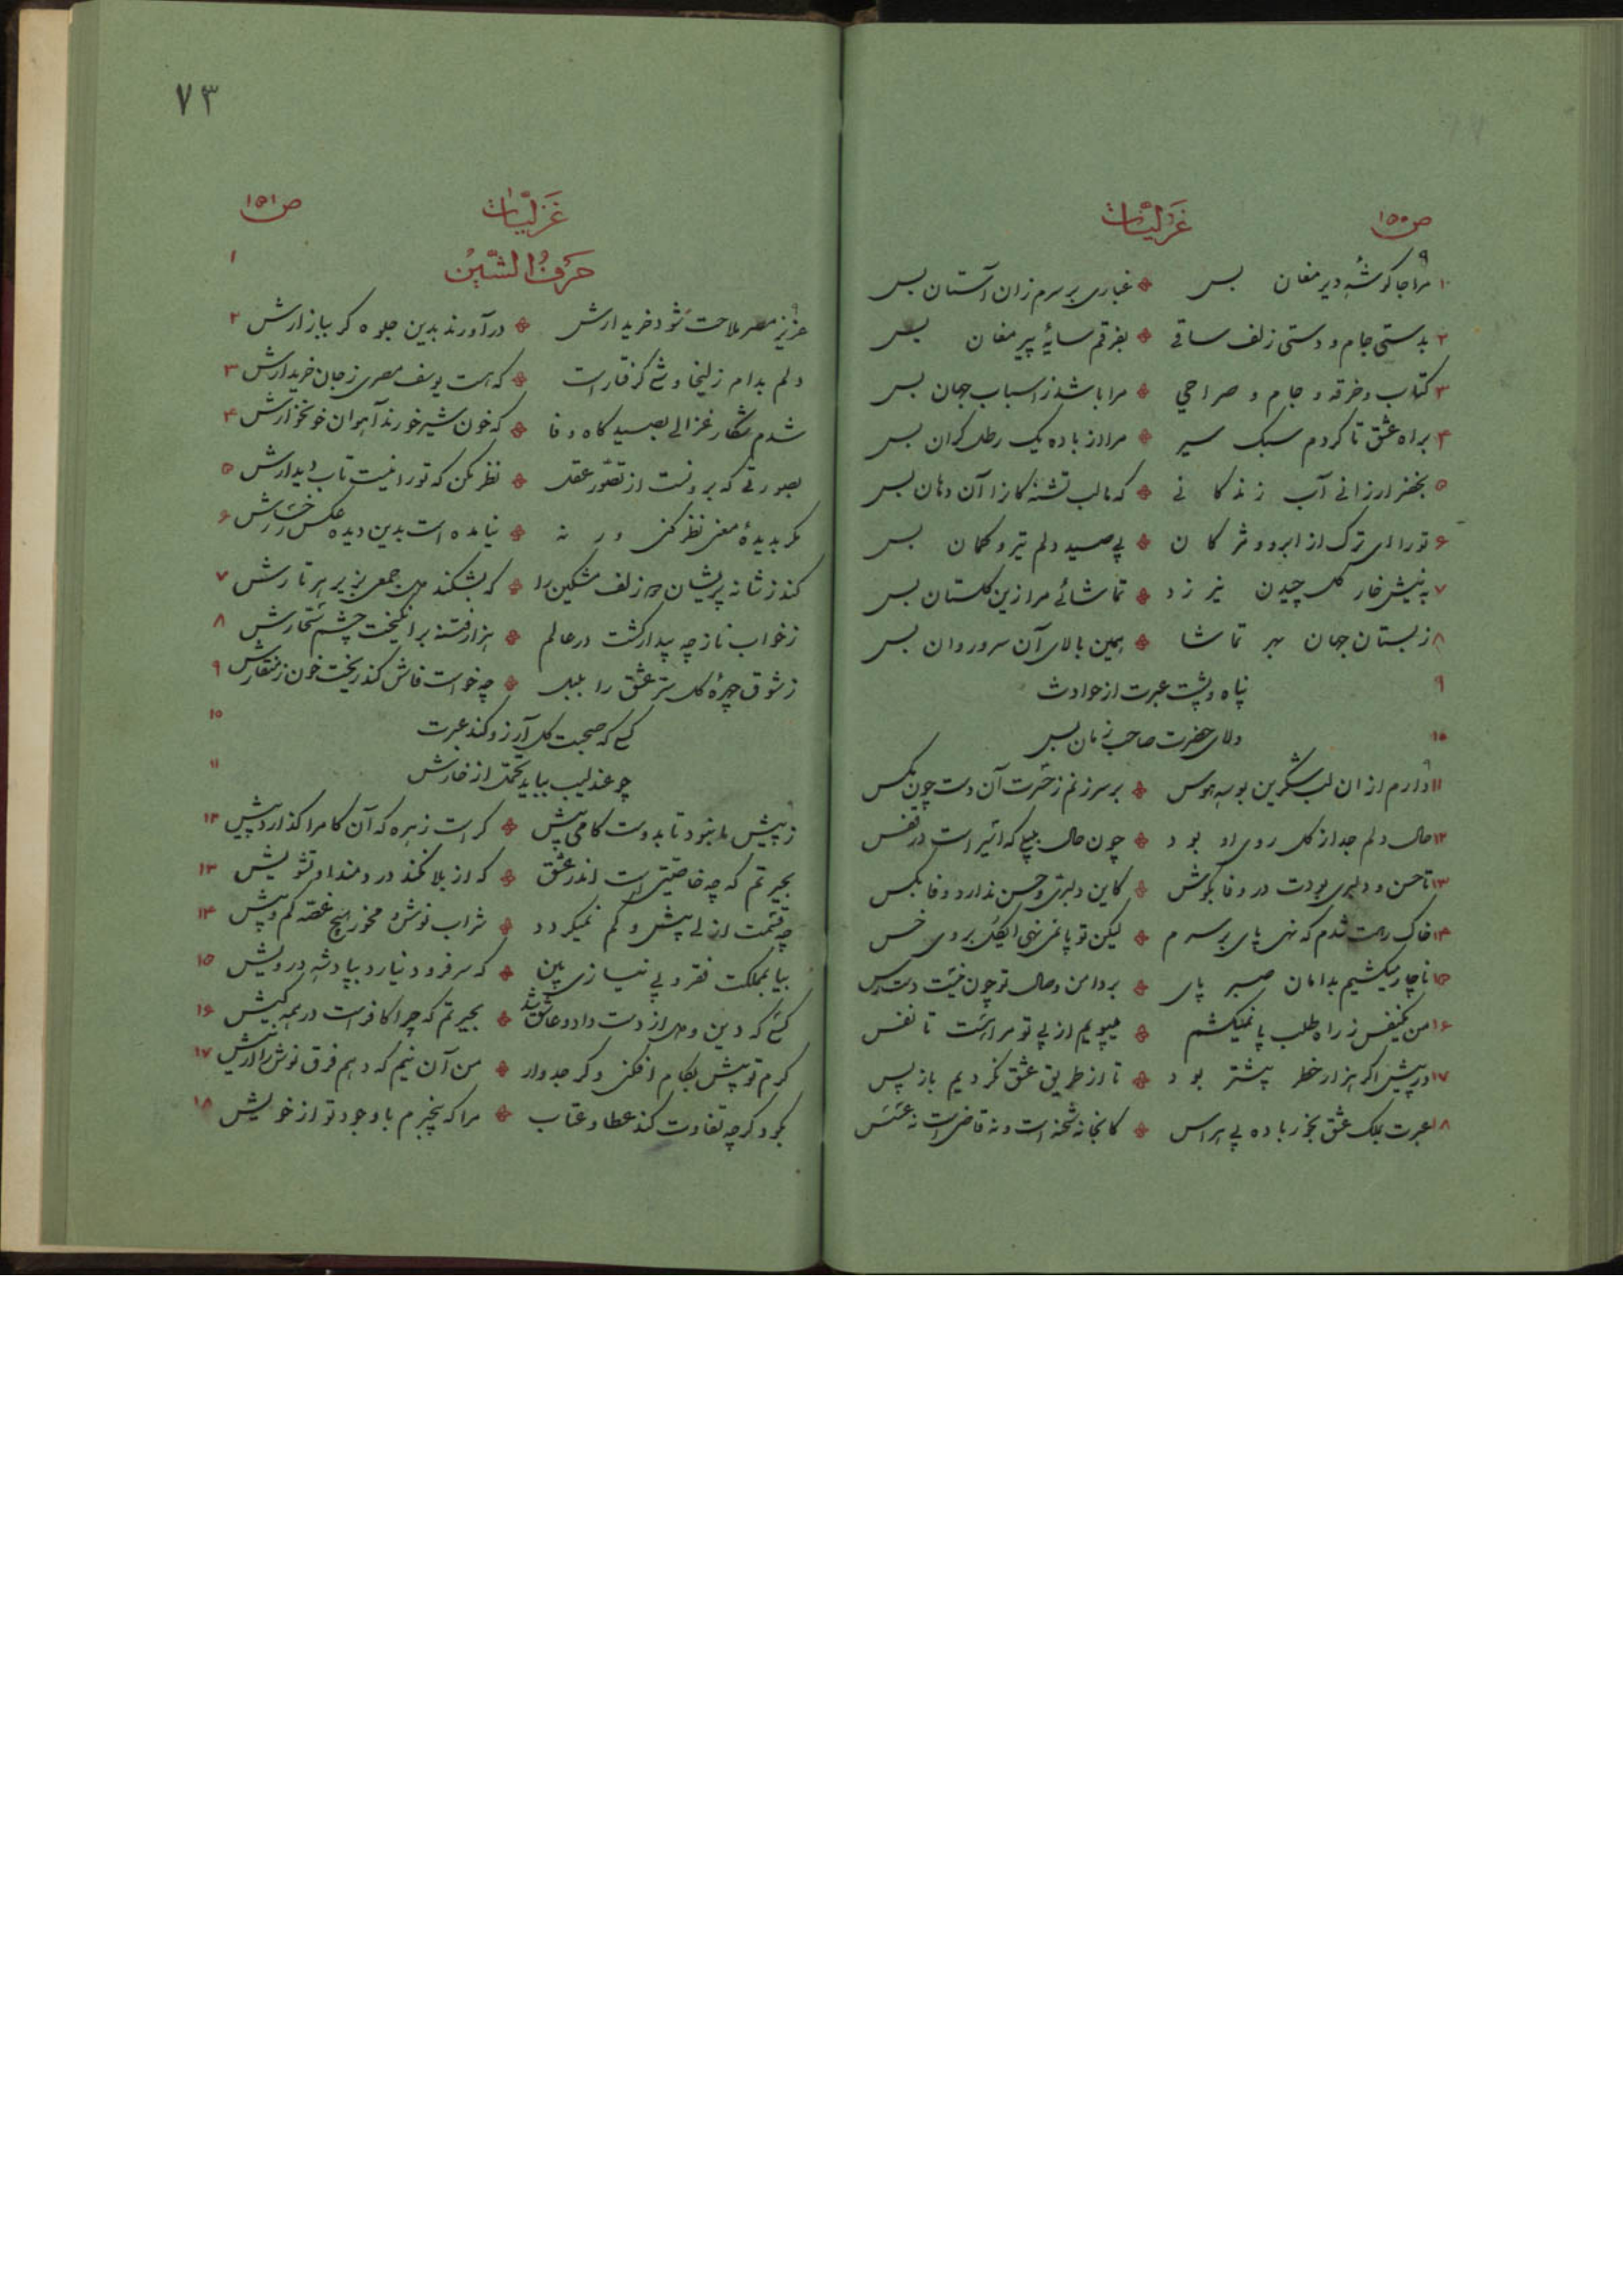 ص ۱۵۰
غزلیات
۱ مرا جا گوشهٔ دیر مغان بس ❖ غباری بر سرم زان آستان بس
۲ بدستی جام و دستی زلف ساقی ❖ بفرقم سایهٔ پیر مغان بس
۳ کتاب و خرقه و جام و صراحی ❖ مرا باشد ز اسباب جهان بس
۴ براه عشق تا کردم سبک سیر ❖ مرا از باده یک رطل گران بس
۵ بخضر ارزانی آب زندگانی ❖ که ما لب تشنه‌کانرا آن دهان بس
۶ تو را ای ترک از ابرو و مژگان ❖ پی صید دلم تیر و کمان بس
۷ به نیش خار گل چیدن نیرزد ❖ تماشائی مرا زین گلستان بس
۸ ز بستان جهان بهر تماشا ❖ همین بالای آن سرو روان بس
۹ پناه و پشت عبرت از حوادث
۱۰ ولای حضرت صاحب زمان بس
۱۱ دارم از ان لب شکرین بوسه هوس ❖ بر سر زنم ز حسرت آن دست چون مکس
۱۲ حال دلم جدا از گل روی او بود ❖ چون حال بلبلی که اسیر است در قفس
۱۳ تا حسن و دلبری بودت در وفا بکوش ❖ کاین دلبری و حسن ندارد وفا بکس
۱۴ خاک رهت شدم که نهی پای بر سرم ❖ لیکن تو پا نمی‌نهی ایگل بروی خس
۱۵ ناچار میکشیم بدامان صبر پای ❖ بر دامن وصال تو چون نیست دسترس
۱۶ من یکنفس ز راه طلب پا نمیکشم ❖ میپویم از پی تو مرا هست تا نفس
۱۷ در پیش اگر هزار خطر پیشتر بود ❖ ما از طریق عشق نگردیم باز پس
۱۸ عبرت بملک عشق بخور باده بی هراس ❖ کانجا نه شحنه است و نه قاضی است نه عسس
۷۳
ص ۱۵۱
غزلیات
۱ حرف الشین
۲ عزیز مصر ملاحت شود خریدارش ❖ در آورند بدین جلوه گر ببازارش
۳ دلم بدام زلیخا وشی گرفتار است ❖ که هست یوسف مصری ز جان خریدارش
۴ شدم شکار غزالی بصیدگاه وفا ❖ که خون شیر خورند آهوان خونخوارش
۵ بصورتی که برونست از تصور عقل ❖ نظر مکن که تو را نیست تاب دیدارش
۶ مگر بدیدهٔ معنی نظر کنی ور نه ❖ نیامده است بدین دیده عکس رخسارش
۷ کند ز شانه پریشان چو زلف مشکین را ❖ که بشکند دل جمعی بزیر هر تارش
۸ ز خواب ناز چه بیدار گشت در عالم ❖ هزار فتنه بر انگیخت چشم سحارش
۹ ز شوق چهرهٔ گل سر عشق را بلبل ❖ چه خواست فاش کند ریخت خون ز منقارش
۱۰ کسی که صحبت گل آرزو کند عبرت
۱۱ چو عندلیب بباید تحمل از خارش
۱۲ ز پیش ما نبود تا بدوست گامی بیش ❖ کر است زهره که آن گام را گذارد پیش
۱۳ بحیرتم که چه خاصیتی است اندر عشق ❖ که از بلا نکند دردمند او تشویش
۱۴ چه قسمت ازلی بیش و کم نمیگردد ❖ شراب نوش و مخور هیچ غصه کم و بیش
۱۵ بیا بمملکت فقر و بی نیازی بین ❖ که سر فرود نیارد بپادشه درویش
۱۶ کسی که دین و دل از دست داد و عاشق شد ❖ بحیرتم که چرا کافر است در همه کیش
۱۷ گرم تو بیش بکام افکنی و گر جدوار ❖ من آن نیم که دهم فرق نوش را از نیش
۱۸ بگرد گر چه تفاوت کند عطا و عتاب ❖ مرا که بیخبرم با وجود تو از خویش